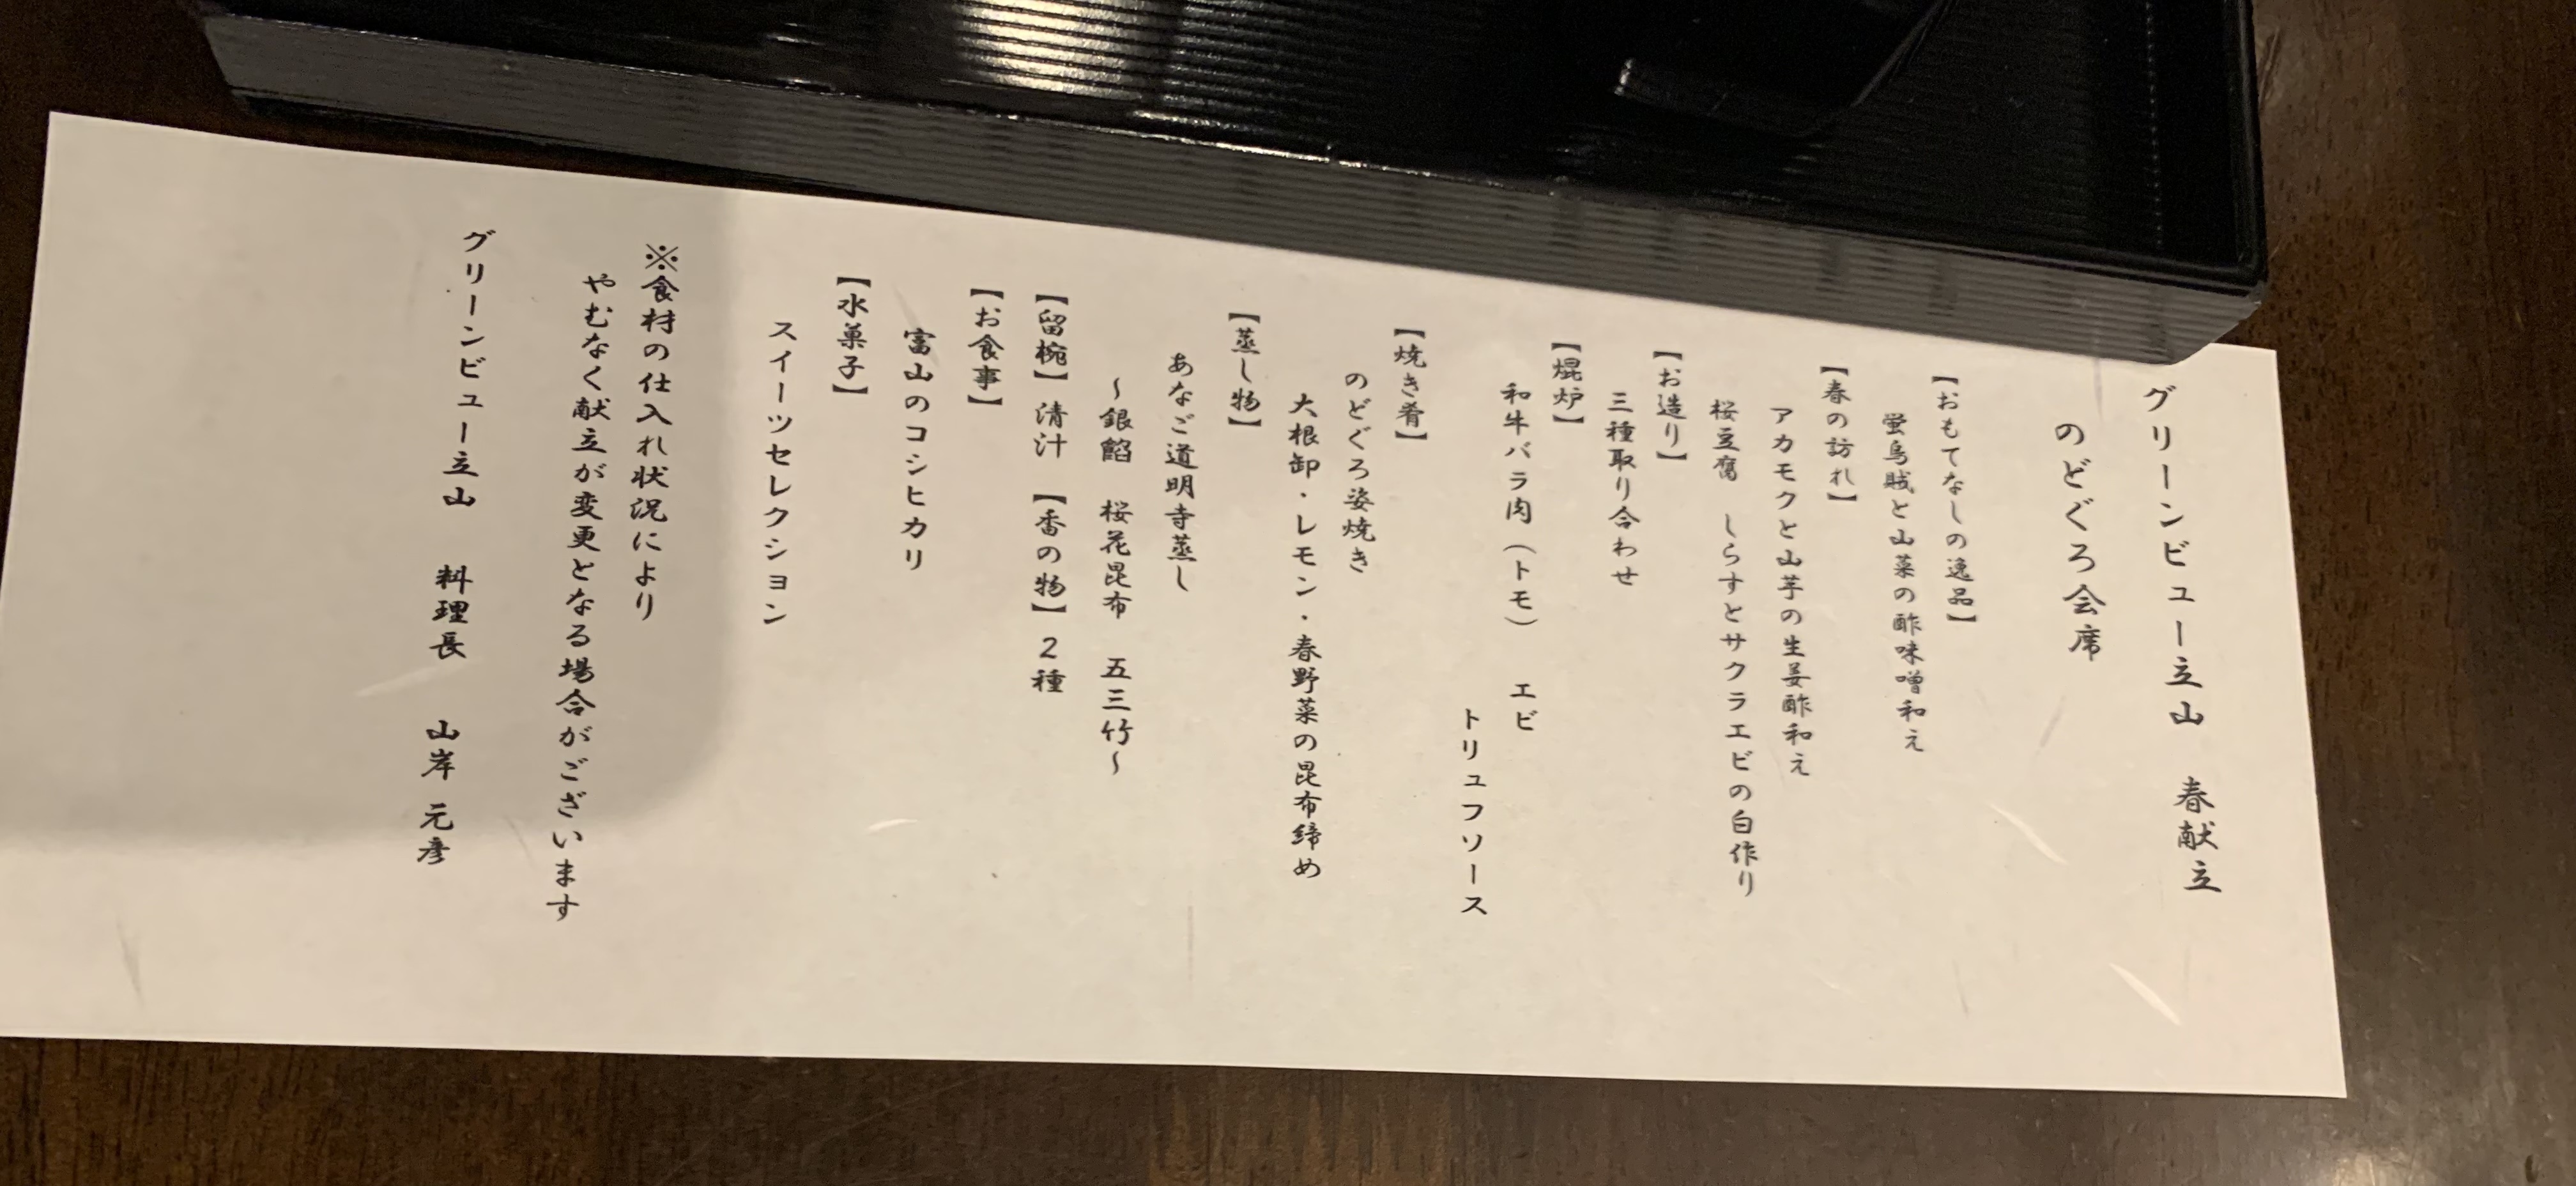 グリーンビュー立山　春献立
のどぐろ会席
【おもてなしの逸品】
蛍烏賊と山菜の酢味噌和え
【春の訪れ】
アカモクと山芋の生姜酢和え
桜豆腐　しらすとサクラエビの白作り
【お造り】
三種取り合わせ
【焜炉】
和牛バラ肉（トモ）　エビ
トリュフソース
【焼き肴】
のどぐろ姿焼き
大根卸・レモン・春野菜の昆布締め
【蒸し物】
あなご道明寺蒸し
～銀餡　桜花昆布　五三竹～
【留椀】清汁　【香の物】２種
【お食事】
富山のコシヒカリ
【水菓子】
スイーツセレクション
※食材の仕入れ状況により
やむなく献立が変更となる場合がございます
グリーンビュー立山　料理長　山岸　元彦